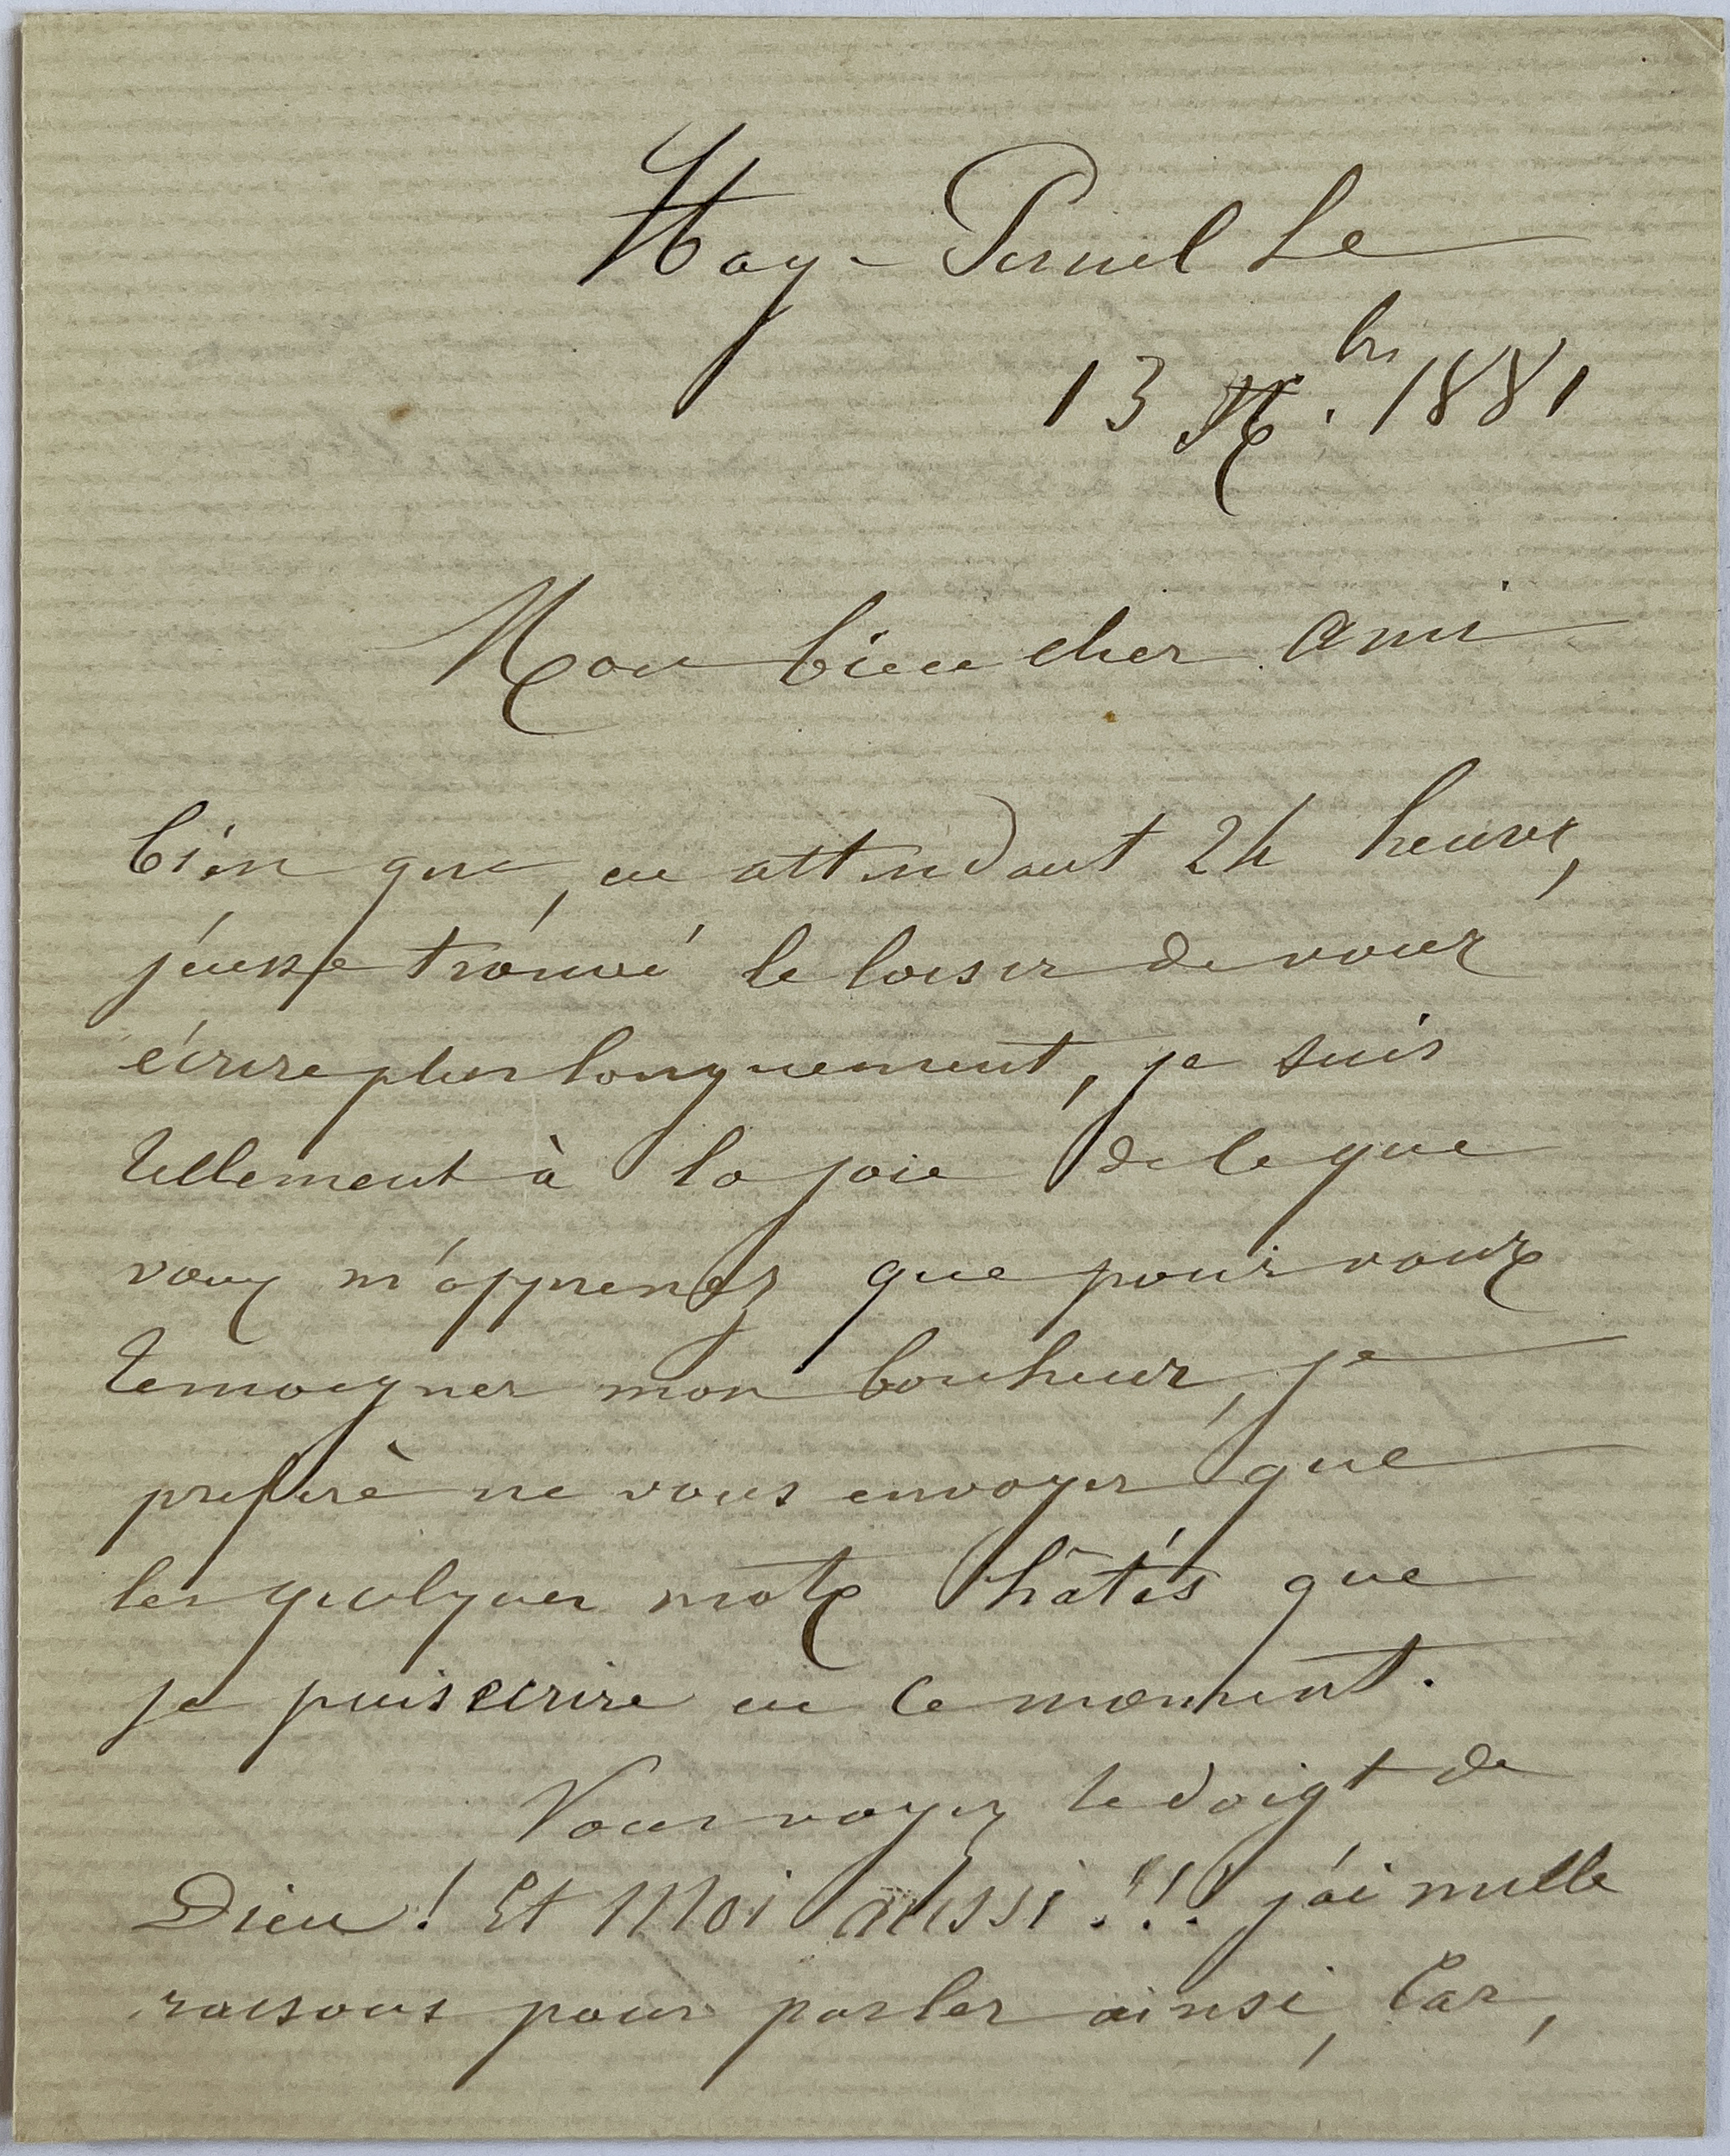 Hay-Pesnel Le
13 Xbre. 1881
Mon bien cher ami
bien que, en attendant 24 heures,
j'eusse trouvé le loisir de vous
écrire plus longuement, je suis
tellement à la joie de ce que
vous m'apprenez que pour vous
temoigner mon bonheur, je
preferè ne vous envoyer que
les quelques mots hâtés que
je puis ecrire en ce moment.
Vous voyez le doigt de
Dieu! Et Moi aussi!!! j'ai mille
raisons pour parler ainsi, Car,